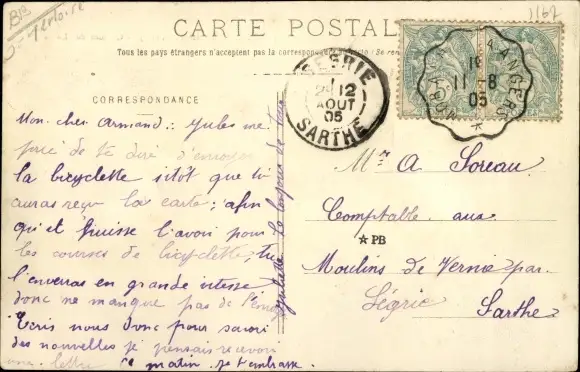 1162
CARTE POSTALE
Tous les pays étrangers n'acceptent pas la correspondance
CORRESPONDANCE
SEGRIE
2e 12
AOUT
05
SARTHE
ANGERS
11 8
05
Mon cher Armand: Jules me
prie de te dire d'envoyer
la bicyclette sitôt que tu
auras reçu la carte; afin
qu'il puisse l'avoir pour
les courses de bicyclette, tu
l'enverras en grande vitesse
donc ne manque pas de l'envoyer
Écris nous donc pour savoir
des nouvelles je pensais recevoir
une lettre ce matin. Je t'embrasse.
Juliette
Mr A Soreau
Comptable aux
★ PB
Moulins de Vernie par
Ségrie
Sarthe